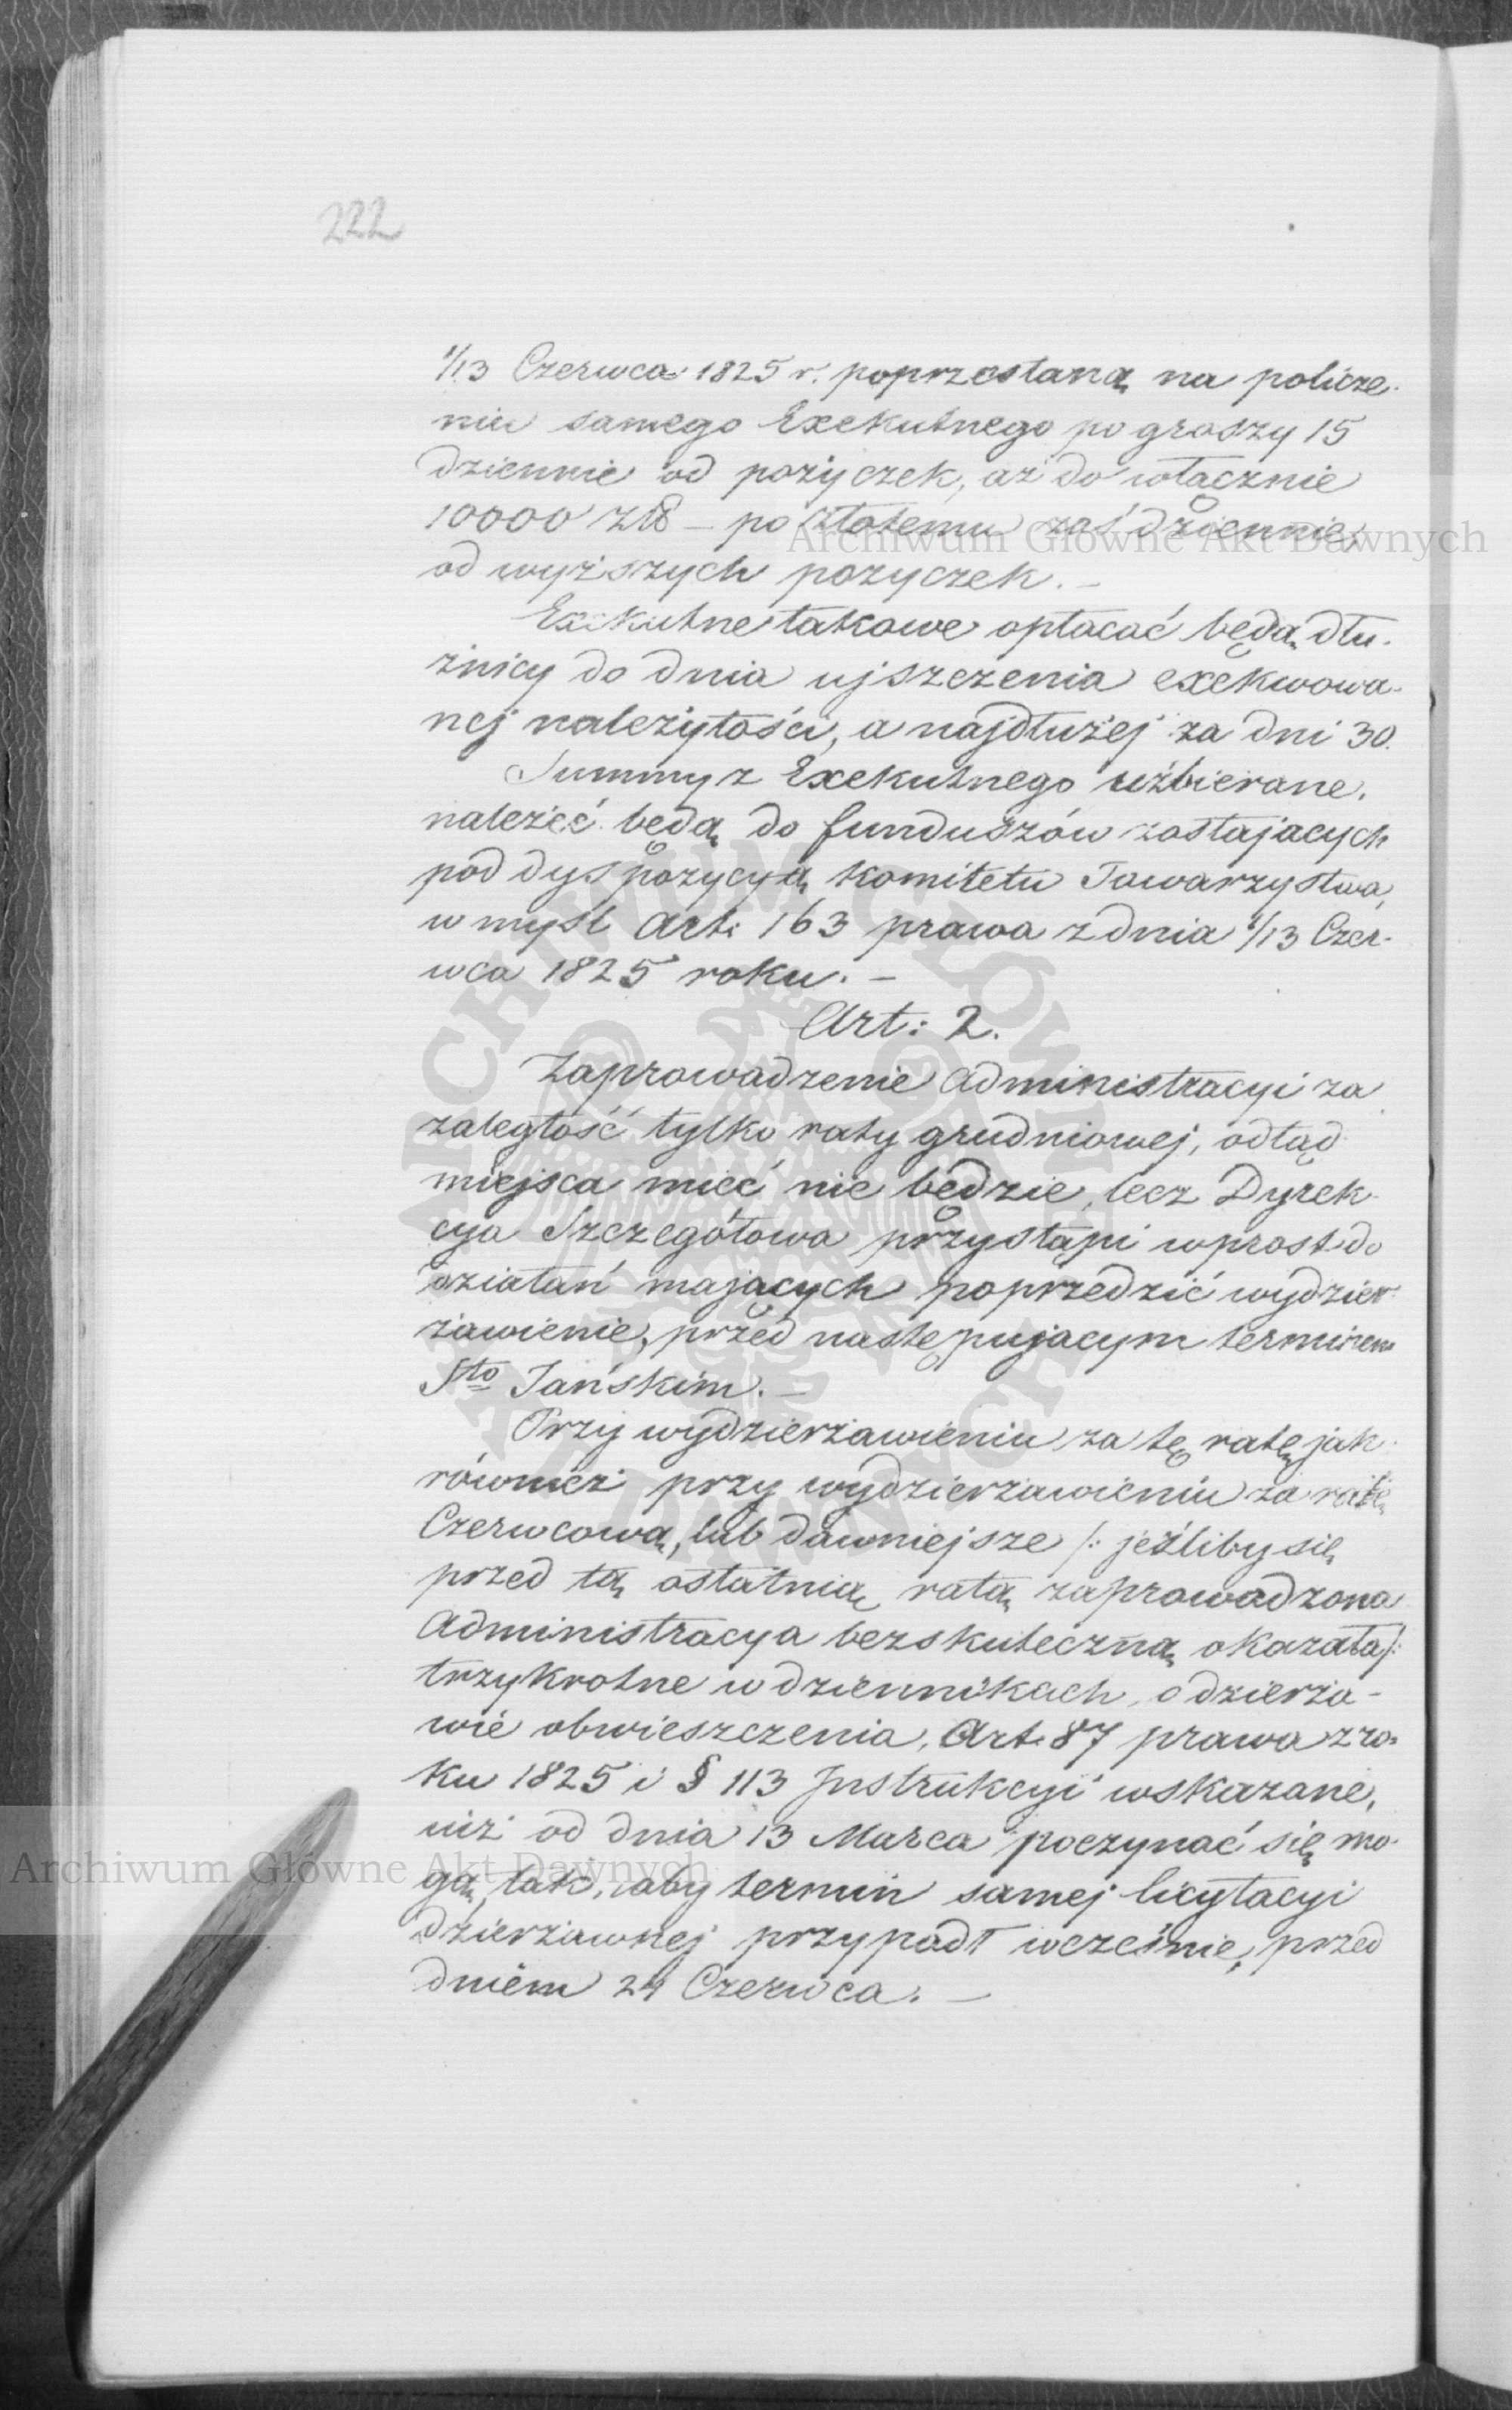 222
1/13 Czerwca 1825 r. poprzestaną na policze-
niu samego Exekutnego po groszy 15
dziennie od pożyczek, aż do włącznie
10000 zł – po złotemu zaś dziennie,
od wyższych pożyczek. –
Exekutne takowe opłacać będą dłu-
żnicy do dnia ujszczenia exekwowa-
nej należytości, a najdłużej za dni 30.
Summy z Exekutnego uzbierane,
należeć będą do funduszów zostających
pod dyspozycyą Komitetu Towarzystwa,
w myśl Art: 163 prawa z dnia 1/13 Czer-
wca 1825 roku. –
Art: 2.
Zaprowadzenie Administracyi za
zaległość tylko raty grudniowej, odtąd
miejsca mieć nie będzie, lecz Dyrek-
cya Szczegółowa przystąpi wprost do
działań mających poprzedzić wydzier-
żawienie, przed następującym terminem
Sto Jańskim. –
Przy wydzierżawieniu za tę ratę jak
również przy wydzierżawieniu za ratę
Czerwcową, lub dawniejsze /: jeźliby się
przed tą ostatnią ratą zaprowadzona
Administracya bezskuteczną okazała :/
trzykrotne w dziennikach, o dzierża-
wie obwieszczenia, Art. 87 prawa z ro-
ku 1825 i § 113 Instrukcyi wskazane,
już od dnia 13 Marca poczynać się mo-
gą, tak, aby termin samej licytacyi
dzierżawnej przypadł wcześnie, przed
dniem 24 Czerwca. –
Archiwum Główne Akt Dawnych
Archiwum Główne Akt Dawnych
ARCHIWUM GŁÓWNE AKT DAWNYCH